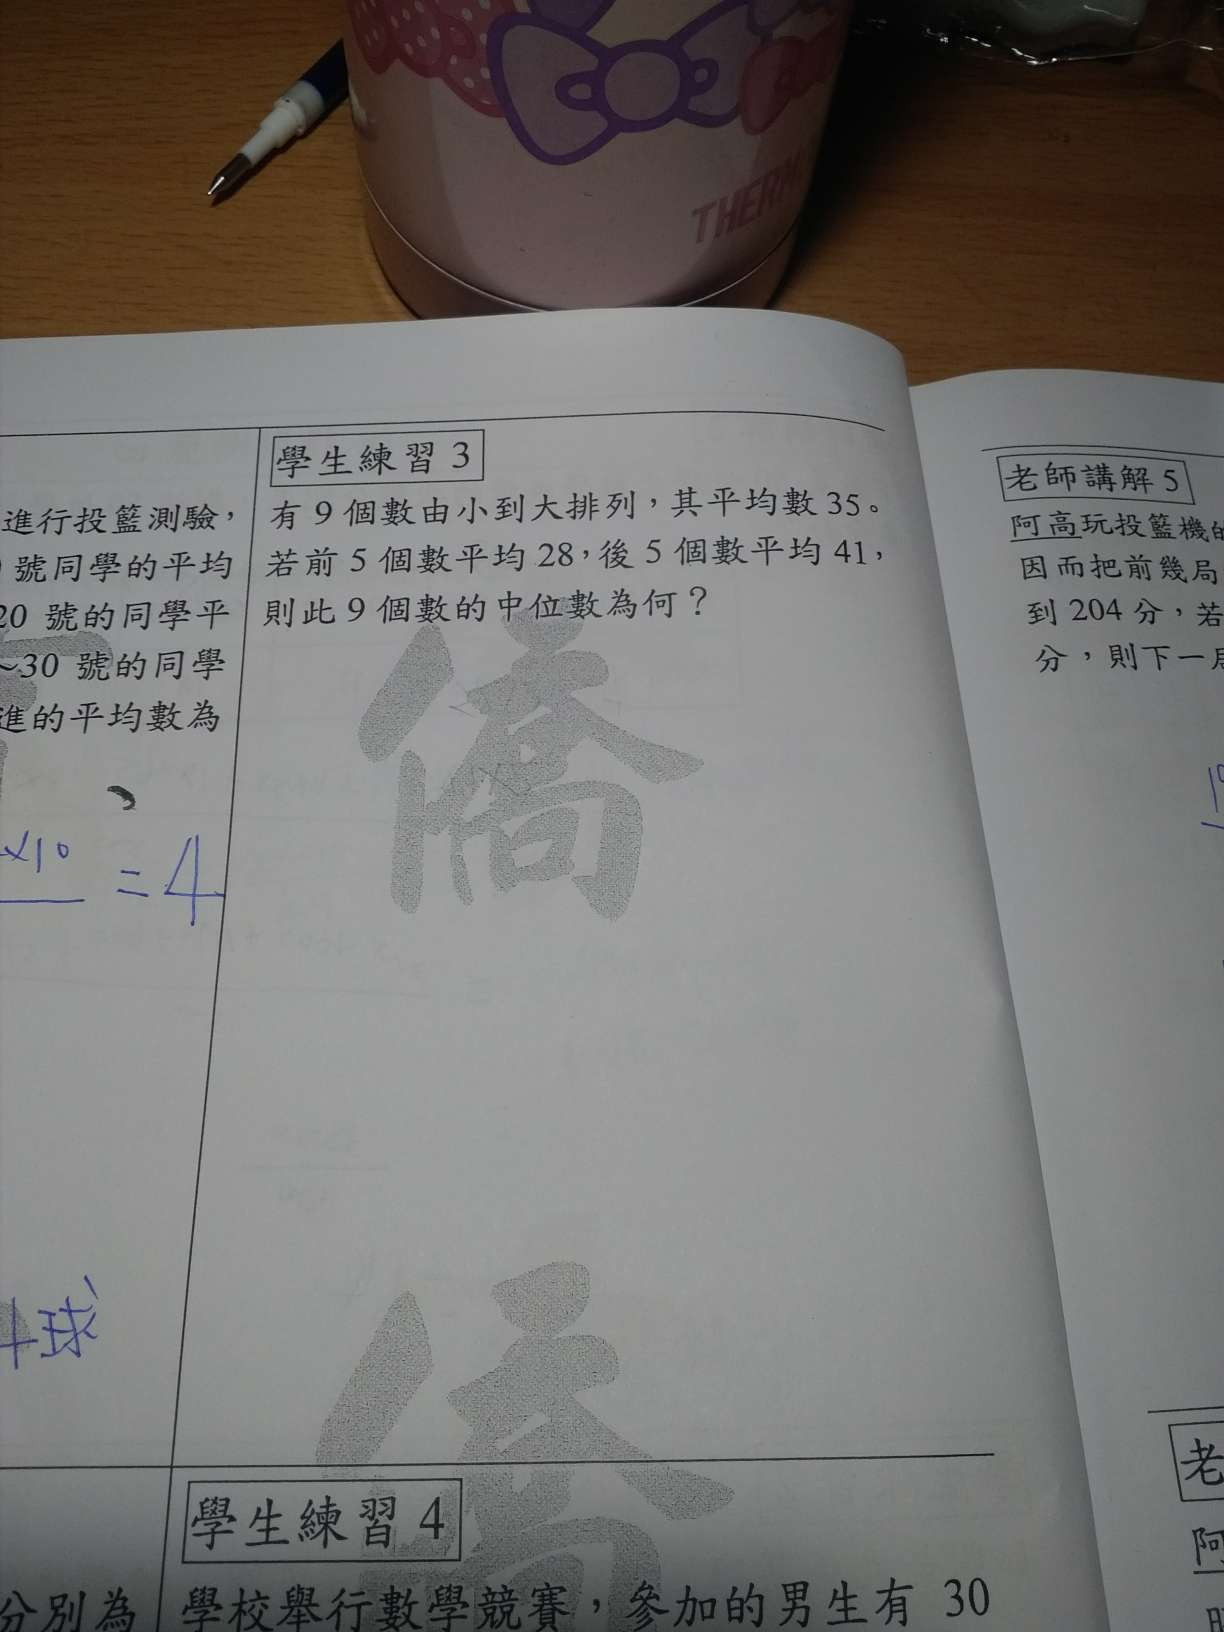 THERM
進行投籃測驗，
號同學的平均
20 號的同學平
~30 號的同學
進的平均數為
×10
= 4
球
分別為
學生練習 3
有 9 個數由小到大排列，其平均數 35。
若前 5 個數平均 28，後 5 個數平均 41，
則此 9 個數的中位數為何？
僑
僑
學生練習 4
學校舉行數學競賽，參加的男生有 30
老師講解 5
阿高玩投籃機的
因而把前幾局
到 204 分，若
分，則下一局
老
阿